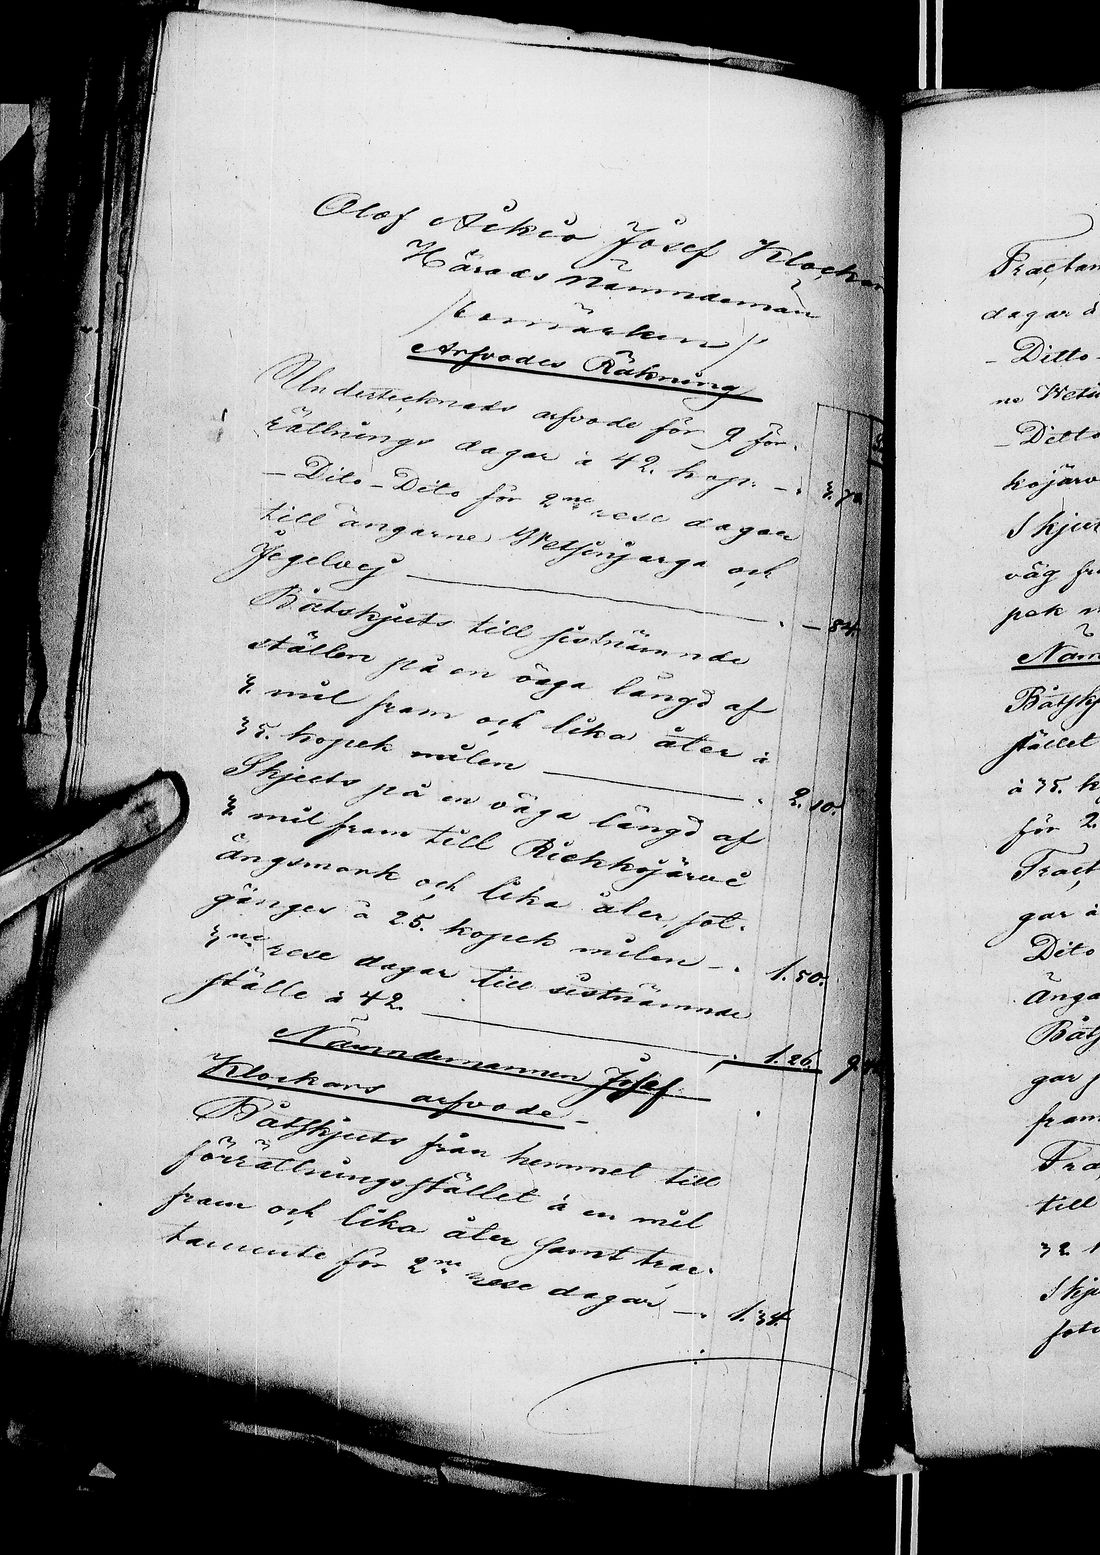 Olof Aikio Josef Klockar
Härads Nämndemän
(bomärken)
Arfvodes Räkning
Undertecknads arfvode för 9 för-
rättnings dagar à 42. kop. — 3.78
— Dito — Dito för 2ne rese dagar
till ängarne Wetsinjarga och
Jegelvej — 84.
Båtskjuts till sistnämnde
ställen på en väga längd af
3. mil fram och lika åter à
35. kopek milen — 2.10.
Skjuts på en väga längd af
3. mil fram till Riekkojärvi
ängsmark och lika åter fot-
gänges à 25. kopek milen — 1.50.
3ne rese dagar till sistnämnde
ställe à 42. — 1.26. 9
Nämndemannen Josef
Klockars arfvode —
Båtskjuts från hemmet till
förrättningsstället à en mil
fram och lika åter samt trac-
tamente för 2ne rese dagar — 1.34.
Tractam
dagar à
— Ditto —
ne Wets
— Ditto
kojärv
Skjut
väg fr
pek m
Näm
Båtskj
stället
à 35. k
för 2
Tract
gar à
Dito
Änga
Båts
gar f
fram
Tra
till
32 k
Skju
fot